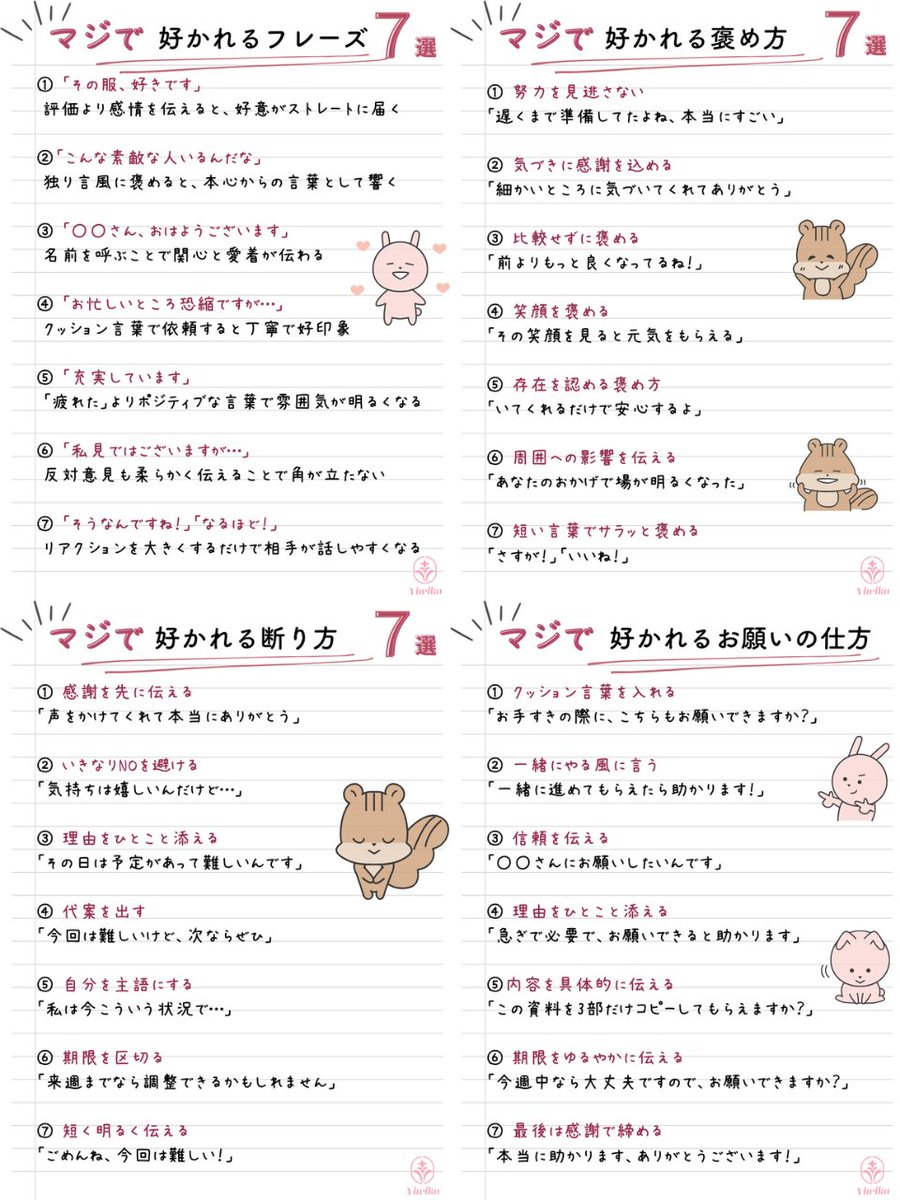 マジで 好かれるフレーズ 7選
① 「その服、好きです」
評価より感情を伝えると、好意がストレートに届く
②「こんな素敵な人いるんだな」
独り言風に褒めると、本心からの言葉として響く
③ 「〇〇さん、おはようございます」
名前を呼ぶことで関心と愛着が伝わる
④ 「お忙しいところ恐縮ですが…」
クッション言葉で依頼すると丁寧で好印象
⑤ 「充実しています」
「疲れた」よりポジティブな言葉で雰囲気が明るくなる
⑥ 「私見ではございますが…」
反対意見も柔らかく伝えることで角が立たない
⑦ 「そうなんですね!」「なるほど!」
リアクションを大きくするだけで相手が話しやすくなる
マジで 好かれる褒め方 7選
① 努力を見逃さない
「遅くまで準備してたよね、本当にすごい」
② 気づきに感謝を込める
「細かいところに気づいてくれてありがとう」
③ 比較せずに褒める
「前よりもっと良くなってるね!」
④ 笑顔を褒める
「その笑顔を見ると元気をもらえる」
⑤ 存在を認める褒め方
「いてくれるだけで安心するよ」
⑥ 周囲への影響を伝える
「あなたのおかげで場が明るくなった」
⑦ 短い言葉でサラッと褒める
「さすが!」「いいね!」
マジで 好かれる断り方 7選
① 感謝を先に伝える
「声をかけてくれて本当にありがとう」
② いきなりNOを避ける
「気持ちは嬉しいんだけど…」
③ 理由をひとこと添える
「その日は予定があって難しいんです」
④ 代案を出す
「今回は難しいけど、次ならぜひ」
⑤ 自分を主語にする
「私は今こういう状況で…」
⑥ 期限を区切る
「来週までなら調整できるかもしれません」
⑦ 短く明るく伝える
「ごめんね、今回は難しい!」
マジで 好かれるお願いの仕方
① クッション言葉を入れる
「お手すきの際に、こちらもお願いできますか?」
② 一緒にやる風に言う
「一緒に進めてもらえたら助かります!」
③ 信頼を伝える
「〇〇さんにお願いしたいんです」
④ 理由をひとこと添える
「急ぎで必要で、お願いできると助かります」
⑤内容を具体的に伝える
「この資料を3部だけコピーしてもらえますか?」
⑥ 期限をゆるやかに伝える
「今週中なら大丈夫ですので、お願いできますか?」
⑦ 最後は感謝で締める
「本当に助かります、ありがとうございます!」